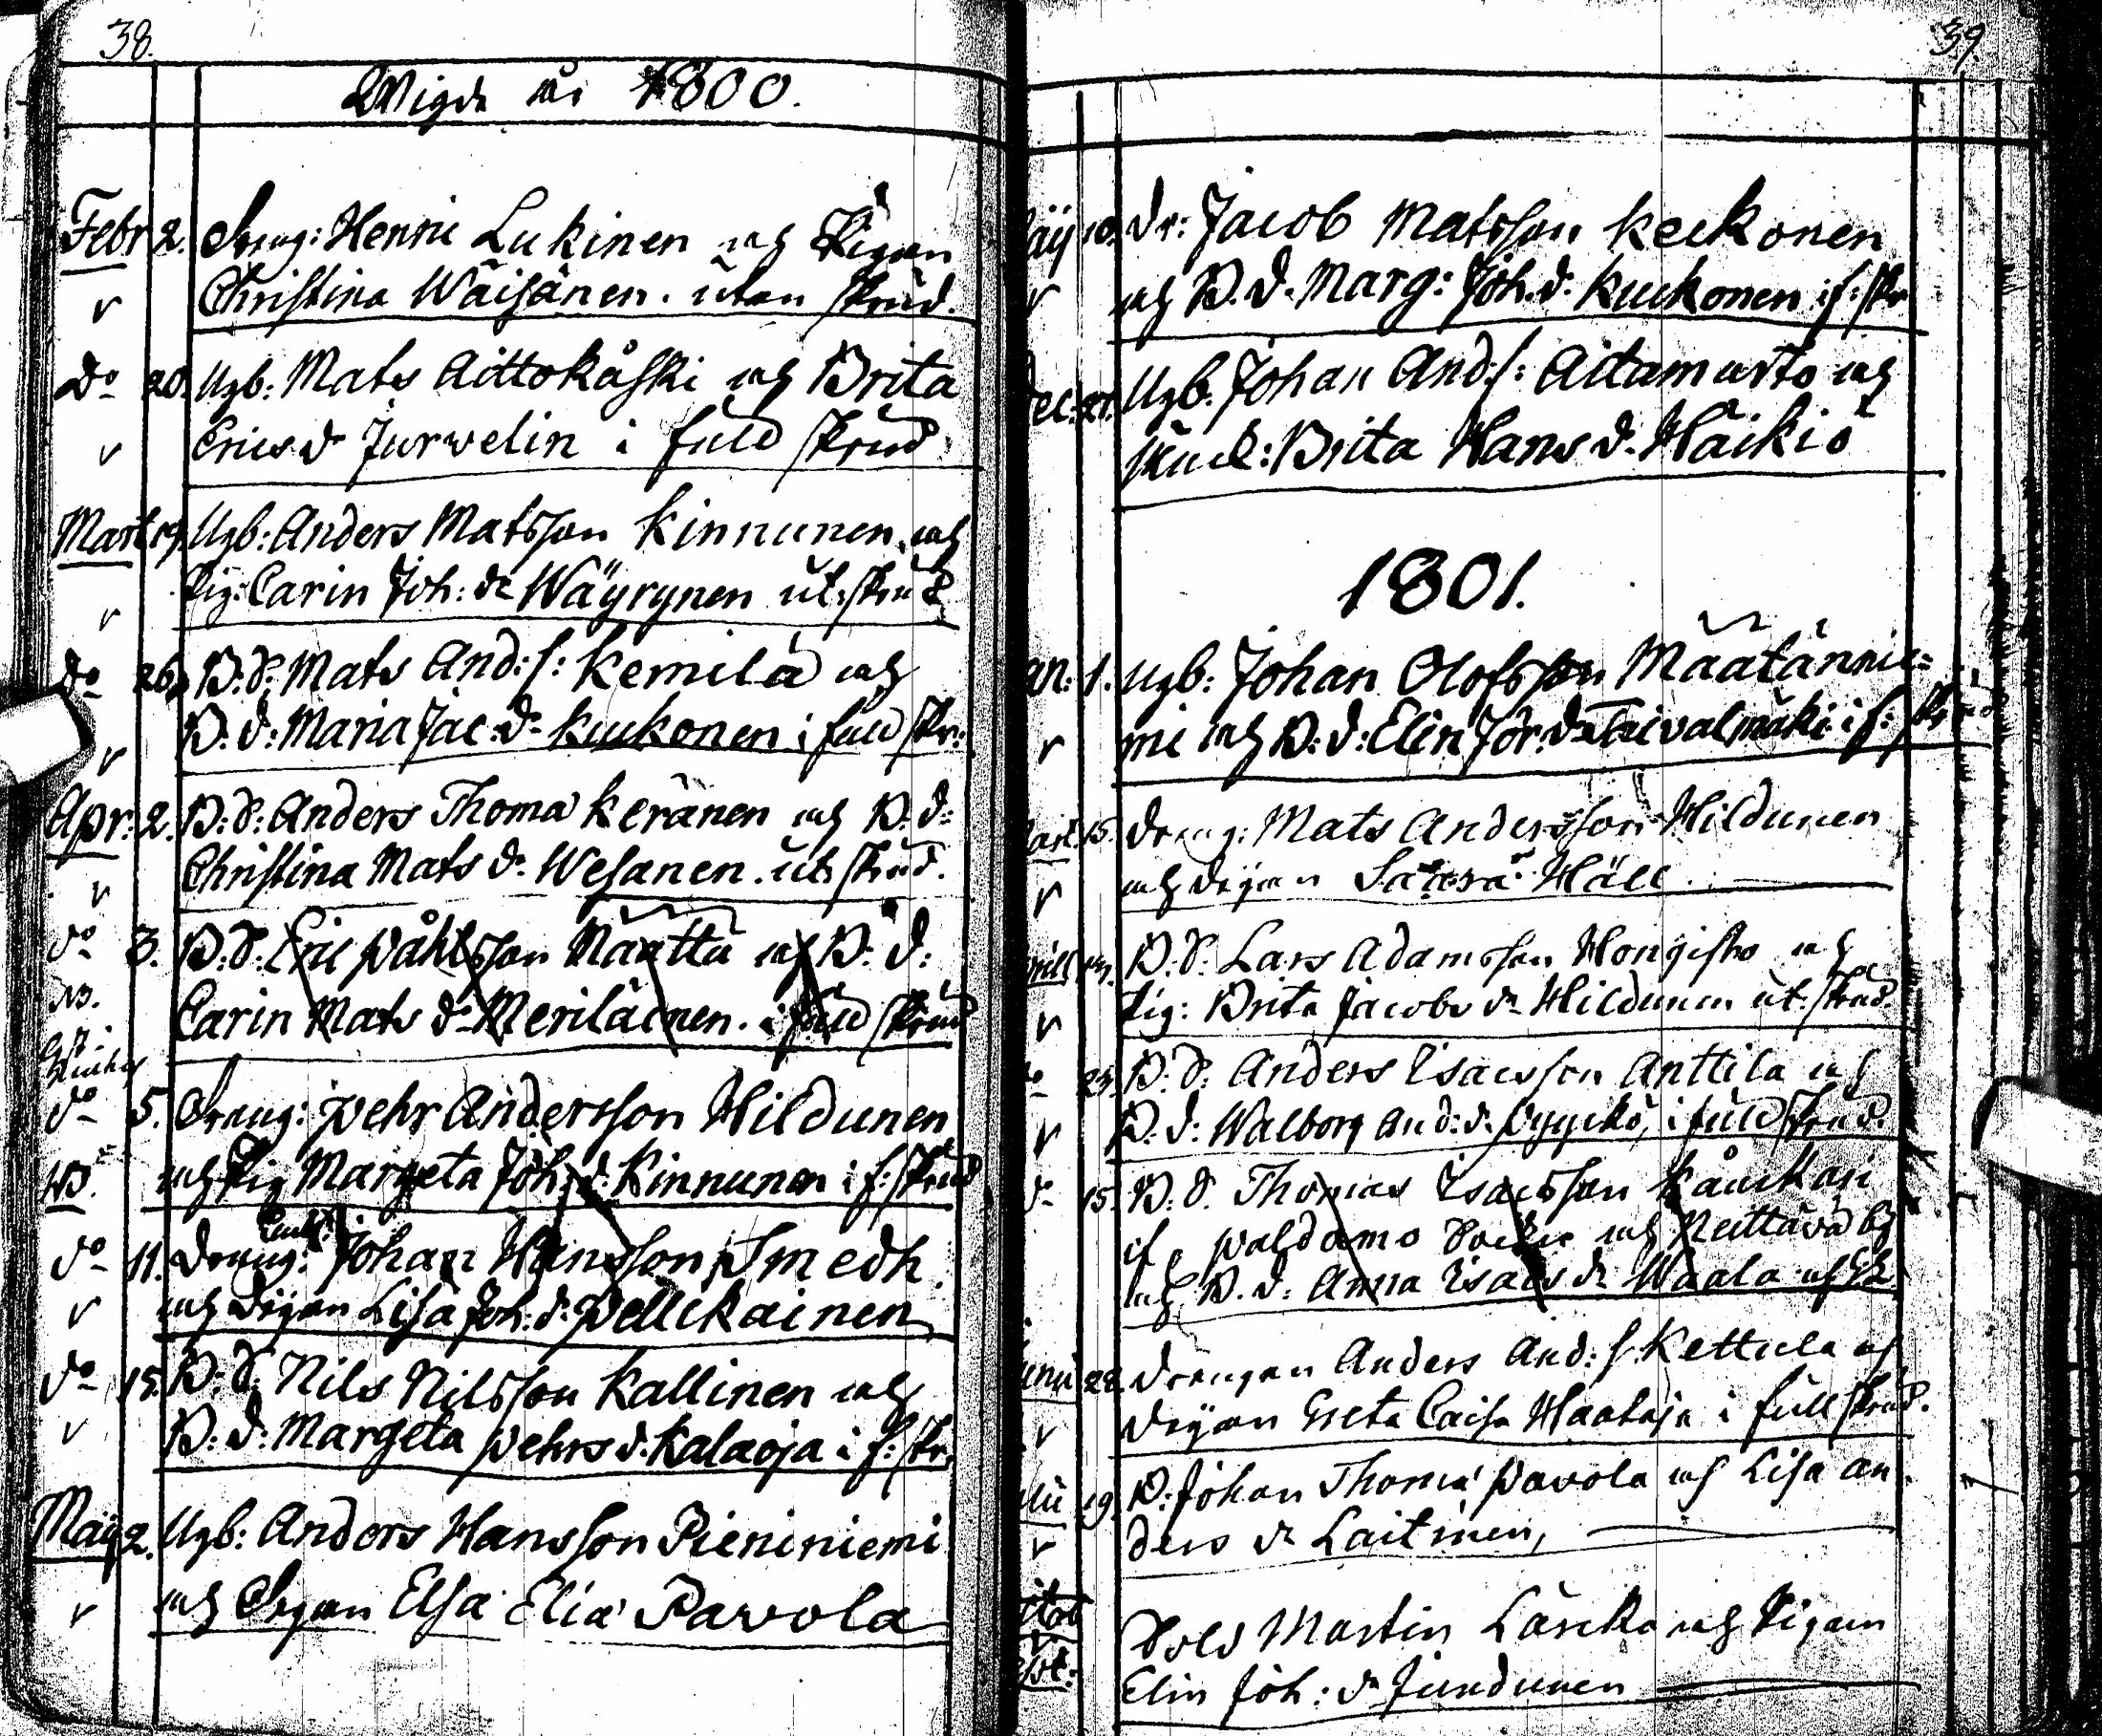 38.
Wigde år 1800.
Febr 2. Dreng: Henric Lukinen och Pigan
Christina Wäisänen. utan skrud.
Do 20. Ugb: Mats Aittokåski och Brita
Erics dr Jurwelin i full skrud
Mart 19. Ugb: Anders Matsson Kinnunen och
Pig: Carin Joh: dr Wäyrynen ut. skrud
Do 26. B.S: Mats And: s: Kemilä och
B. d: Maria Jac: dr Kuckonen i full skr:
Apr: 2. B: S: Anders Thoma Keränen och B. d:
Christina Mats dr Wesanen. ut. skrud.
do 3. B: S: Eric Påhlsson Määttä och B. d:
NB. Carin Mats dr Meriläinen. i full skrud
do 5. Dreng: Pehr Andersson Hildunen
NB. och Pig Margeta Joh: d. Kinnunen i f: skrud
do 11. Dreng: Johan Hansson Smedh
och Pigan Lisa Joh: d. Pellikainen
do 15. B: S: Nils Nilsson Kallinen och
B: d: Margeta Pehrs d. Kalaoja i f: skr.
Maij 2. Ugb: Anders Hansson Pieniniemi
och Pigan Elsa Elia Pavola
39.
aij 10. Dr: Jacob Matsson Keckonen
och B. d. Marg: Joh. d. Kuckonen i f: skr
ec: 21. Ugb. Johan And: s: Aitamurto och
Brita Hans d. Häikiö
1801.
an: 1. Ugb: Johan Olofsson Määtännie=
mi och B: d: Elin Jör: dr Taivalmäki i f: skrud
art 15. Dreng: Mats Andersson Hildunen
och Pigan Häll
rill B. S: Lars Adamsson Hongisto och
Pig: Brita Jacobs dr Hildunen ut. skrud.
do 25. B: S: Anders Isacsson Anttila och
B. d: Walborg And: d. Pyyckö, i full skrud.
do 15. B: S. Thomas Isacsson Kåuckari
af Paldamo Socken och
och B. d: Anna Isacs dr Waala
uni 22 Drengen Anders And: s: Kettula och
Pigan Greta Caisa Haataja i full skrud.
uli 19. B: Johan Thoma Pavola och Lisa An
ders dr Laitinen,
Sold Martin Läscko och Pigan
Elin Joh: dr Jundunen